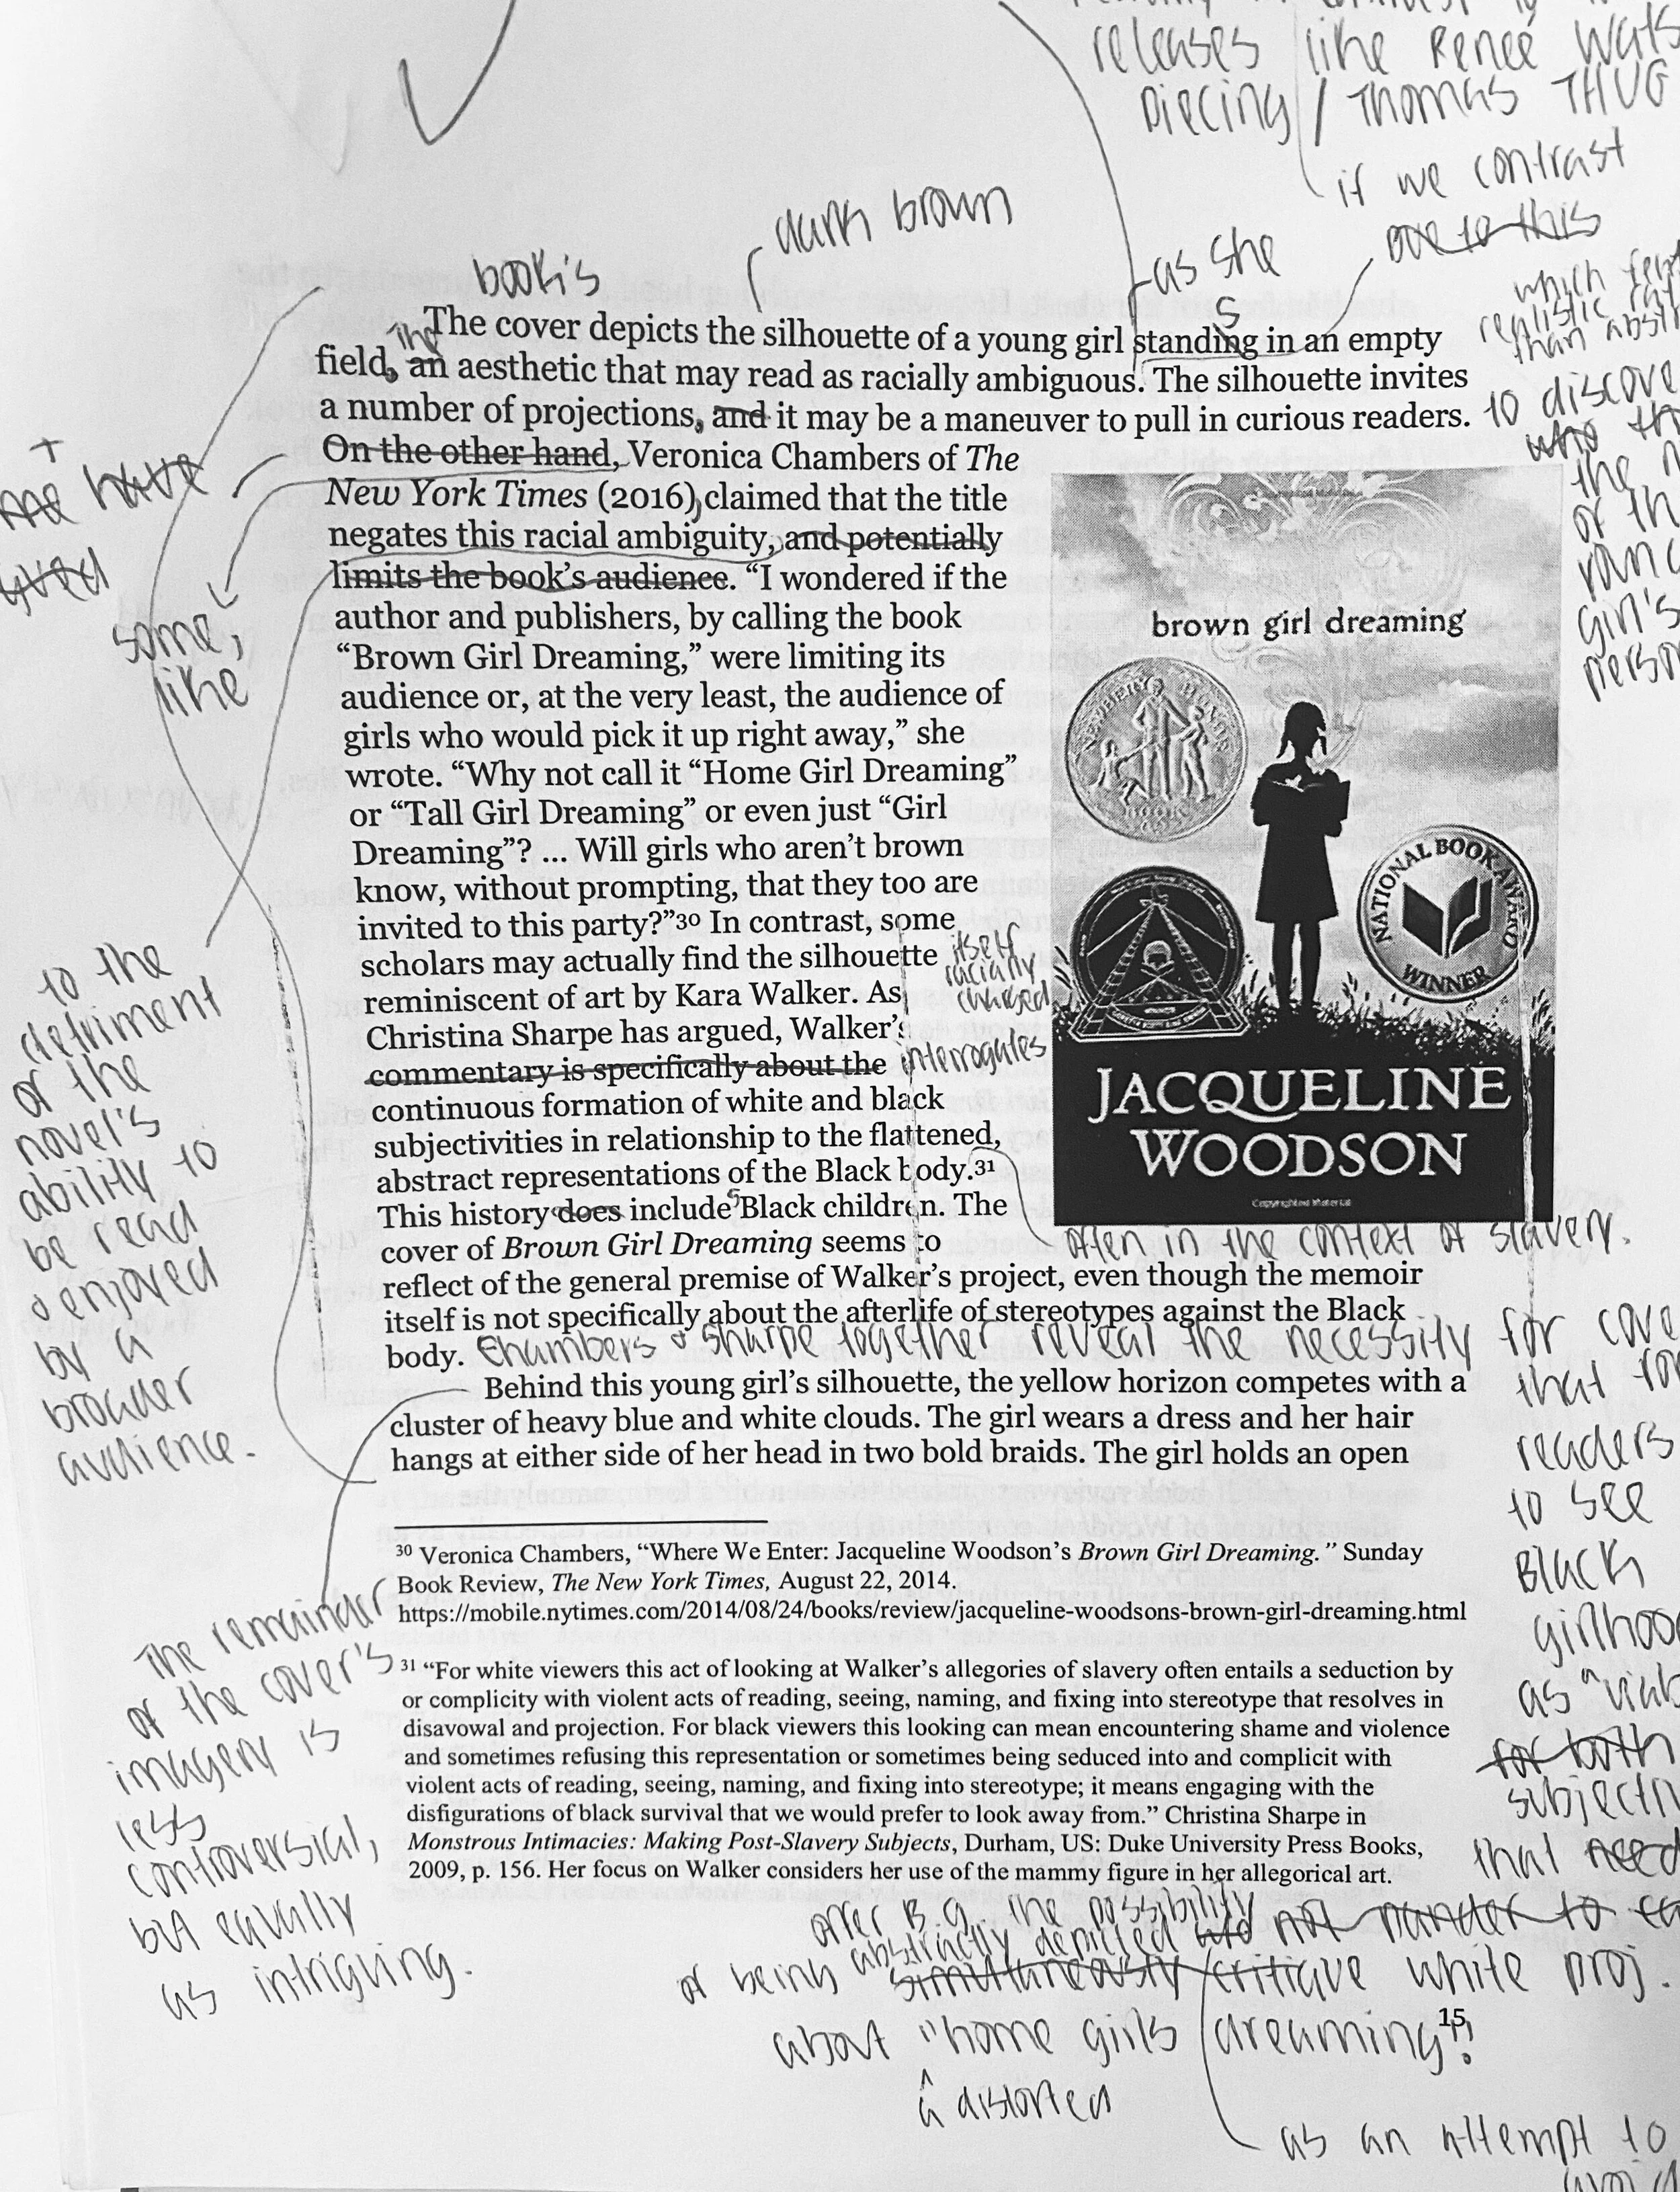 releases like Reneé Wats
Piecing / Thomas THUG
if we contrast
due to this
dark brown
book's
as she
S
which
realistic
than abstr
The cover depicts the silhouette of a young girl standing in an empty
field, an aesthetic that may read as racially ambiguous. The silhouette invites
a number of projections, and it may be a maneuver to pull in curious readers.
to discove
who th
the n
of th
girl's
person
On the other hand, Veronica Chambers of The
New York Times (2016) claimed that the title
negates this racial ambiguity, and potentially
limits the book's audience. “I wondered if the
author and publishers, by calling the book
“Brown Girl Dreaming,” were limiting its
audience or, at the very least, the audience of
girls who would pick it up right away,” she
wrote. “Why not call it “Home Girl Dreaming”
or “Tall Girl Dreaming” or even just “Girl
Dreaming”? ... Will girls who aren’t brown
know, without prompting, that they too are
invited to this party?”30 In contrast, some
scholars may actually find the silhouette
reminiscent of art by Kara Walker. As
Christina Sharpe has argued, Walker’s
commentary is specifically about the
continuous formation of white and black
subjectivities in relationship to the flattened,
abstract representations of the Black body.31
This history does include Black children. The
cover of Brown Girl Dreaming seems to
reflect of the general premise of Walker’s project, even though the memoir
itself is not specifically about the afterlife of stereotypes against the Black
body.
have
some,
like
itself
racially
charged
interrogates
s
often in the context of slavery.
brown girl dreaming
NATIONAL BOOK AWARD
WINNER
JACQUELINE
WOODSON
Copyrighted Material
to the
detriment
of the
novel's
ability to
be read
& enjoyed
by a
broader
audience.
Chambers & Sharpe together reveal the necessity for cove
that
readers
to see
Black
girlhoo
as
for both
subjecti
that need
Behind this young girl’s silhouette, the yellow horizon competes with a
cluster of heavy blue and white clouds. The girl wears a dress and her hair
hangs at either side of her head in two bold braids. The girl holds an open
30 Veronica Chambers, “Where We Enter: Jacqueline Woodson’s Brown Girl Dreaming.” Sunday
Book Review, The New York Times, August 22, 2014.
https://mobile.nytimes.com/2014/08/24/books/review/jacqueline-woodsons-brown-girl-dreaming.html
31 “For white viewers this act of looking at Walker’s allegories of slavery often entails a seduction by
or complicity with violent acts of reading, seeing, naming, and fixing into stereotype that resolves in
disavowal and projection. For black viewers this looking can mean encountering shame and violence
and sometimes refusing this representation or sometimes being seduced into and complicit with
violent acts of reading, seeing, naming, and fixing into stereotype; it means engaging with the
disfigurations of black survival that we would prefer to look away from.” Christina Sharpe in
Monstrous Intimacies: Making Post-Slavery Subjects, Durham, US: Duke University Press Books,
2009, p. 156. Her focus on Walker considers her use of the mammy figure in her allegorical art.
The remainder
of the cover's
imagery is
less
controversial,
but equally
as intriguing.
offer B.G. the possibility
of being abstractly depicted and not pander to
simultaneously critique white proj.
about "home girls dreaming"!
a distorted
as an attempt to
15